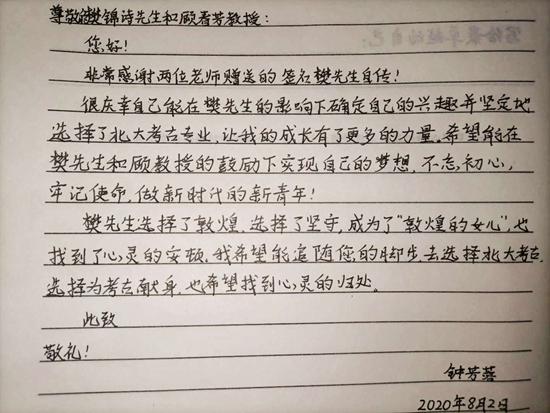 尊敬的樊锦诗先生和顾春芳教授：
您好！
非常感谢两位老师赠送的签名樊先生自传！
很庆幸自己能在樊先生的影响下确定自己的兴趣并坚定地
选择了北大考古专业，让我的成长有了更多的力量。希望能在
樊先生和顾教授的鼓励下实现自己的梦想，不忘初心，
牢记使命，做新时代的新青年！
樊先生选择了敦煌，选择了坚守，成为了“敦煌的女儿”，也
找到了心灵的安顿。我希望能追随您的脚步，去选择北大考古，
选择为考古献身，也希望找到心灵的归处。
此致
敬礼！
钟芳蓉
2020年8月2日